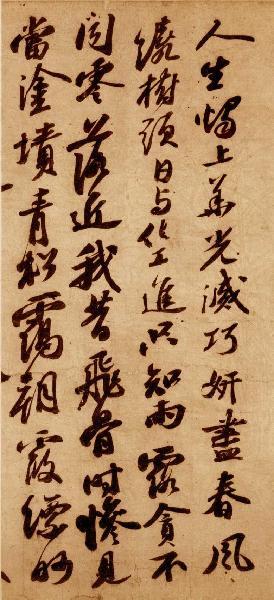 人生燭上華光滅巧妍盡春風
繞樹頭日与化工進只知雨露貪不
聞零落近我昔飛骨時慘見
當塗墳青松靄朝霞縹眇